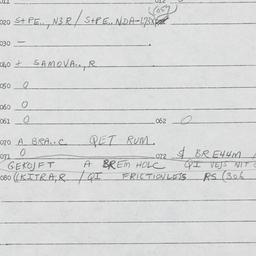 011 012
020 S+PE.., N3R / S+PE.. NDA-1
(059)
030 —
040 + SAMOVA.., R
050 0
060 0
061 0 062 0
070 A BRA..C QET RUM.
071 0 072 $ BREHUM
GEKOJFT A BREM HOLC QI VEJS NIT
080 ((KITRA,R / QI FRICTIONLESS RS (306